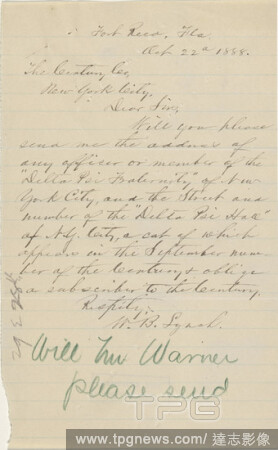 Fort Reed, Fla.
Oct 22d 1888.
The Century Co.
New York City.
Dear Sir,
Will you please
send me the address of
any officer or member of the
"Delta Psi Fraternity" of New
York City, and the Street and
number of the "Delta Psi Hall
of N.Y. City, a cut of which
appears in the September num-
ber of the Century, & oblige
a subscriber to the Century.
Respfly,
W. B. Lynch.
Will Mr Warner
please send
TPG
www.tpgnews.com / 達志影像